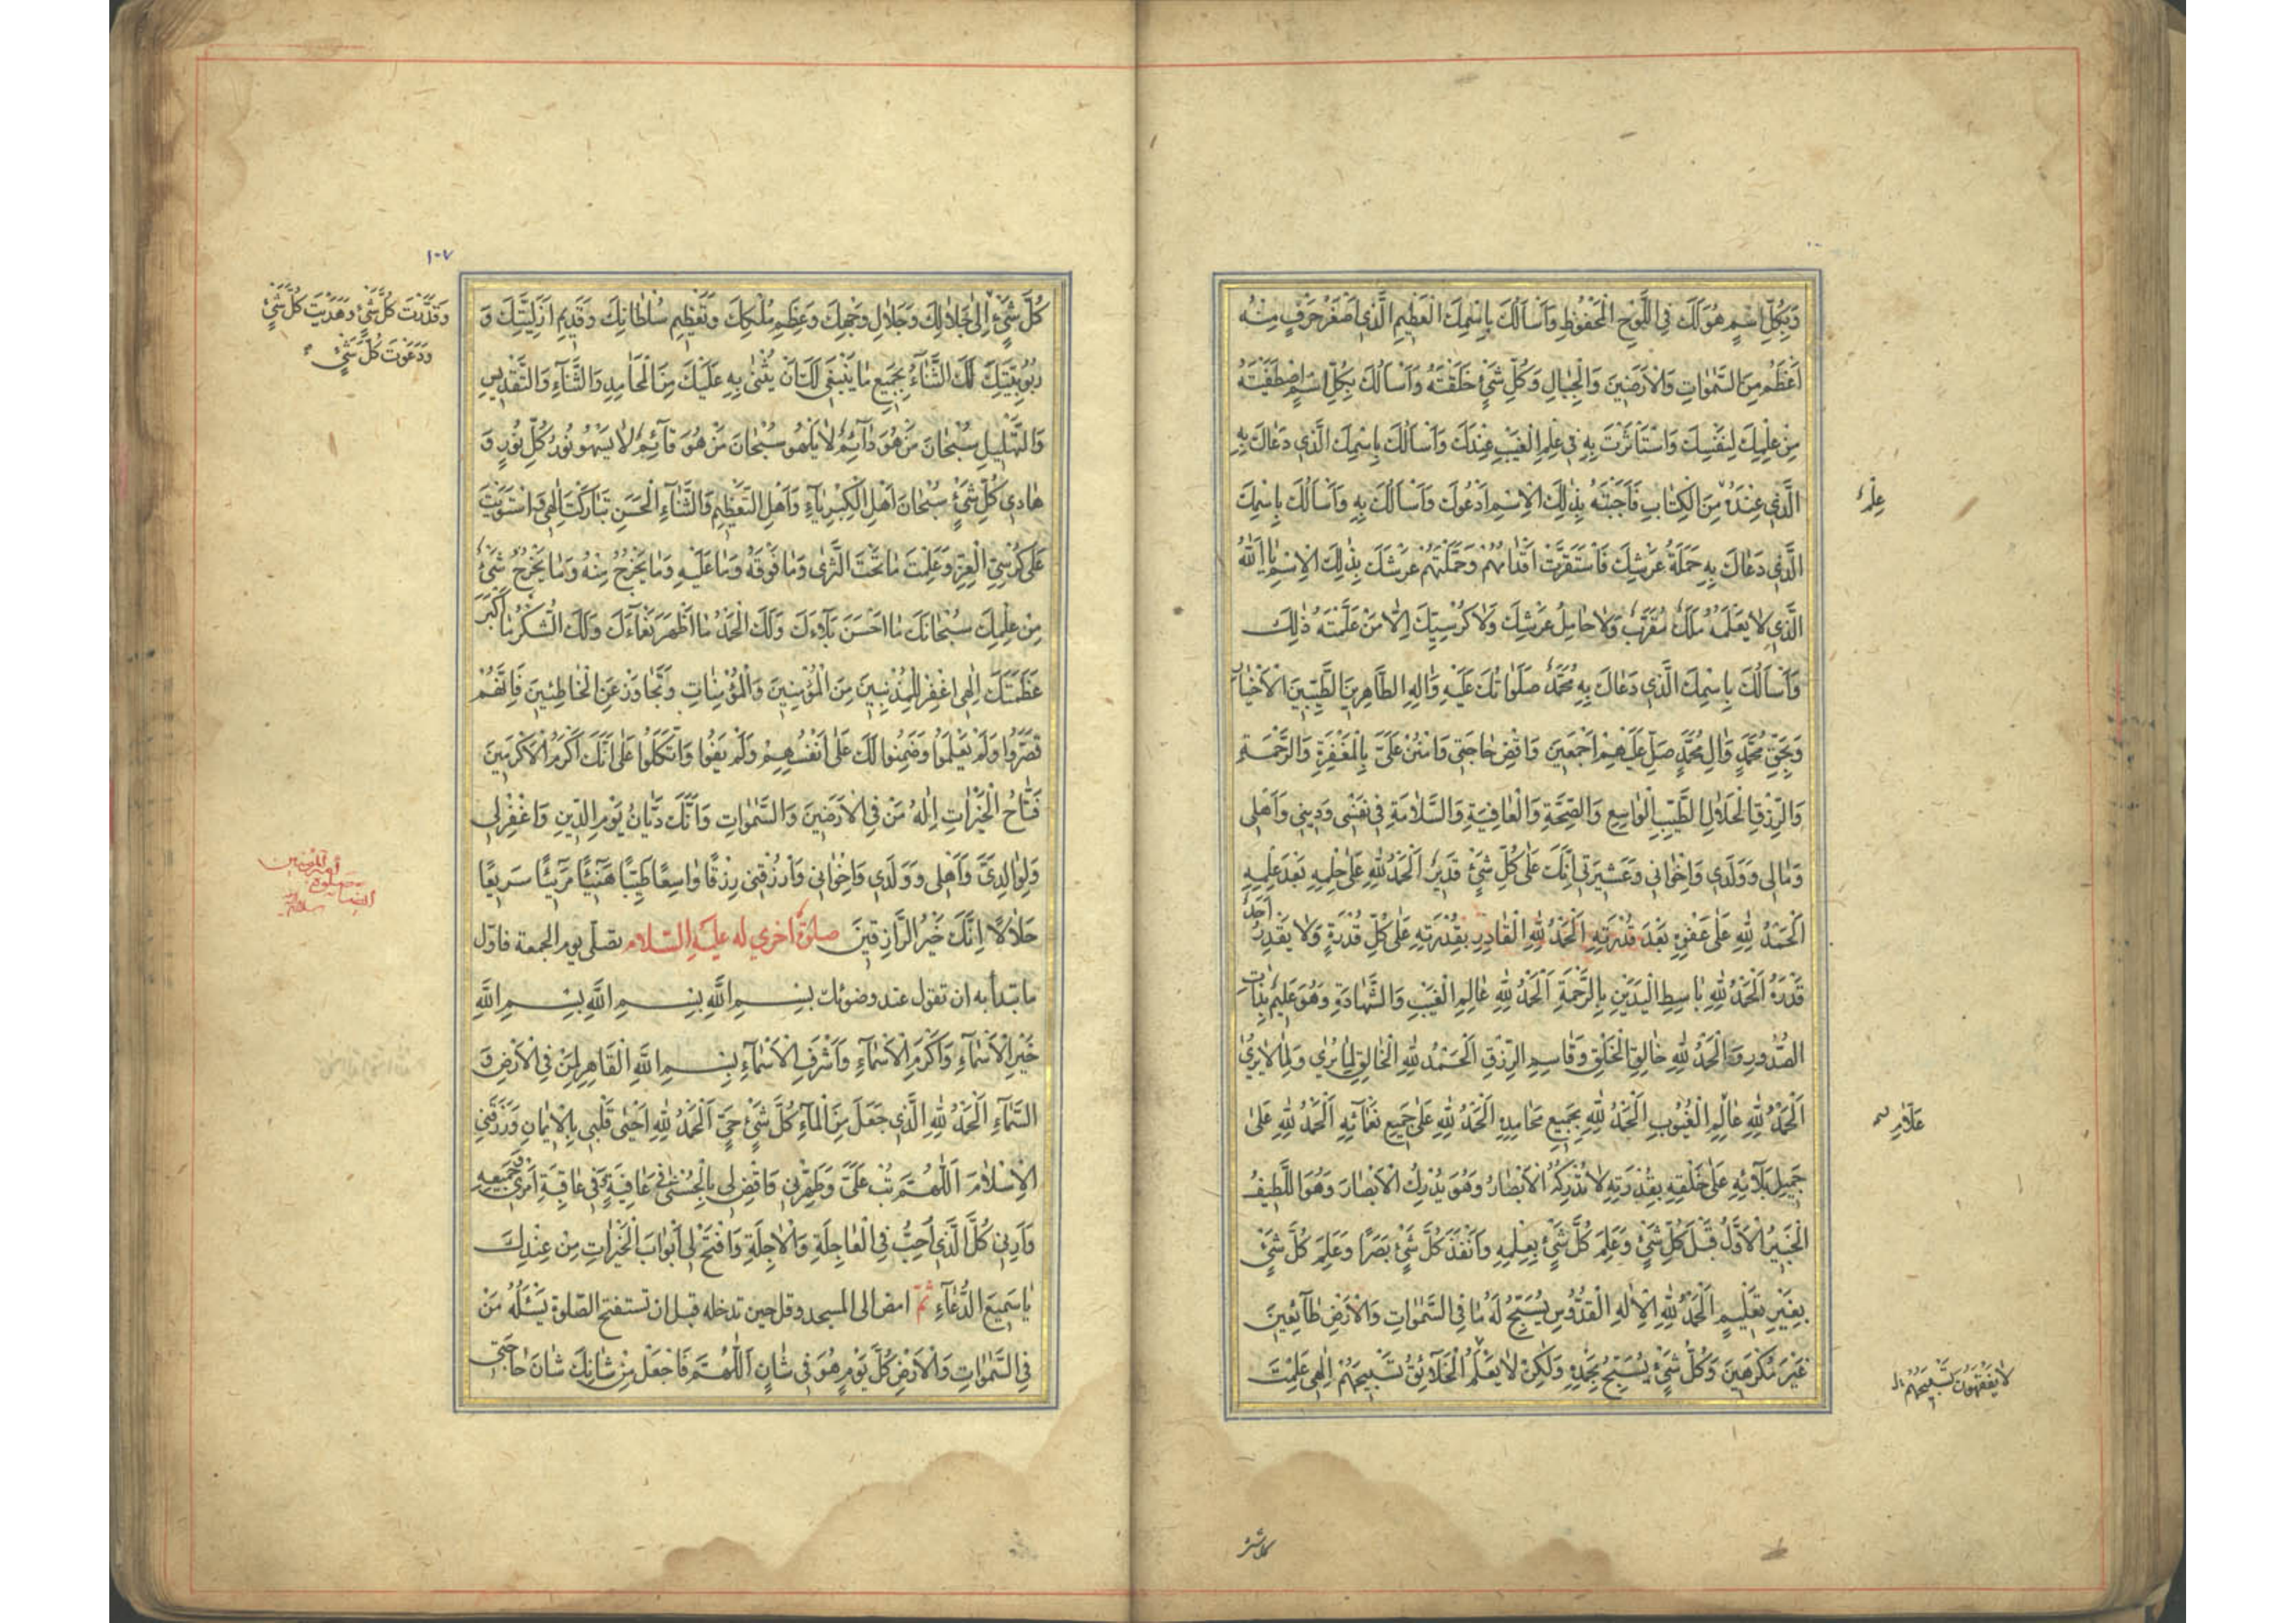 وَبِكُلِّ اسْمٍ هُوَ لَكَ فِي اللَّوْحِ الْمَحْفُوظِ وَأَسْأَلُكَ بِاسْمِكَ الْعَظِيمِ الَّذِي أَصْغَرُ حَرْفٍ مِنْهُ
أَعْظَمُ مِنَ السَّمٰوَاتِ وَالْأَرَضِينَ وَالْجِبَالِ وَكُلِّ شَيْءٍ خَلَقْتَهُ وَأَسْأَلُكَ بِكُلِّ اسْمٍ اصْطَفَيْتَهُ
مِنْ عِلْمِكَ لِنَفْسِكَ وَاسْتَأْثَرْتَ بِهِ فِي عِلْمِ الْغَيْبِ عِنْدَكَ وَأَسْأَلُكَ بِاسْمِكَ الَّذِي دَعَاكَ بِهِ
الَّذِي عِنْدَهُ مِنَ الْكِتَابِ فَأَجَبْتَهُ بِذٰلِكَ الْاِسْمِ أَدْعُوكَ وَأَسْأَلُكَ بِهِ وَأَسْأَلُكَ بِاسْمِكَ
عِلْمٌ
الَّذِي دَعَاكَ بِهِ حَمَلَةُ عَرْشِكَ فَاسْتَقَرَّتْ أَقْدَامُهُمْ وَحَمَّلْتَهُمْ عَرْشَكَ بِذٰلِكَ الْاِسْمِ يَا اَللّٰهُ
الَّذِي لَا يَعْلَمُهُ مَلَكٌ مُقَرَّبٌ وَلَا حَامِلُ عَرْشِكَ وَلَا كُرْسِيِّكَ إِلَّا مَنْ عَلَّمْتَهُ ذٰلِكَ
وَأَسْأَلُكَ بِاسْمِكَ الَّذِي دَعَاكَ بِهِ مُحَمَّدٌ صَلَوَاتُكَ عَلَيْهِ وَاٰلِهِ الطَّاهِرِينَ الطَّيِّبِينَ الْأَخْيَارِ
وَبِحَقِّ مُحَمَّدٍ وَاٰلِ مُحَمَّدٍ صَلِّ عَلَيْهِمْ أَجْمَعِينَ وَاقْضِ حَاجَتِي وَامْنُنْ عَلَيَّ بِالْمَغْفِرَةِ وَالرَّحْمَةِ
وَالرِّزْقِ الْحَلَالِ الطَّيِّبِ الْوَاسِعِ وَالصِّحَّةِ وَالْعَافِيَةِ وَالسَّلَامَةِ فِي نَفْسِي وَدِينِي وَأَهْلِي
وَمَالِي وَوَلَدِي وَإِخْوَانِي وَعَشِيرَتِي إِنَّكَ عَلٰى كُلِّ شَيْءٍ قَدِيرٌ اَلْحَمْدُ لِلّٰهِ عَلٰى حِلْمِهِ بَعْدَ عِلْمِهِ
اَلْحَمْدُ لِلّٰهِ عَلٰى عَفْوِهِ بَعْدَ قُدْرَتِهِ اَلْحَمْدُ لِلّٰهِ الْقَادِرِ بِقُدْرَتِهِ عَلٰى كُلِّ قُدْرَةٍ وَلَا يَقْدِرُ أَحَدٌ
قَدْرَهُ اَلْحَمْدُ لِلّٰهِ بَاسِطِ الْيَدَيْنِ بِالرَّحْمَةِ اَلْحَمْدُ لِلّٰهِ عَالِمِ الْغَيْبِ وَالشَّهَادَةِ وَهُوَ عَلِيمٌ بِذَاتِ
الصُّدُورِ وَالْحَمْدُ لِلّٰهِ خَالِقِ الْخَلْقِ وَقَاسِمِ الرِّزْقِ اَلْحَمْدُ لِلّٰهِ الْخَالِقِ لِمَا يُرٰى وَلِمَا لَا يُرٰى
اَلْحَمْدُ لِلّٰهِ عَالِمِ الْغُيُوبِ اَلْحَمْدُ لِلّٰهِ بِجَمِيعِ مَحَامِدِهِ اَلْحَمْدُ لِلّٰهِ عَلٰى جَمِيعِ نَعْمَائِهِ اَلْحَمْدُ لِلّٰهِ عَلٰى
عَلَّامِ
جَمِيلِ بَلَآئِهِ عَلٰى خَلْقِهِ بِقُدْرَتِهِ لَا تُدْرِكُهُ الْأَبْصَارُ وَهُوَ يُدْرِكُ الْأَبْصَارَ وَهُوَ اللَّطِيفُ
الْخَبِيرُ الْأَوَّلُ قَبْلَ كُلِّ شَيْءٍ وَعَلِمَ كُلَّ شَيْءٍ بِعِلْمِهِ وَأَنْفَذَ كُلَّ شَيْءٍ بَصَرًا وَعَلِمَ كُلَّ شَيْءٍ
بِغَيْرِ تَعْلِيمٍ اَلْحَمْدُ لِلّٰهِ الْإِلٰهِ الْقُدُّوسِ يُسَبِّحُ لَهُ مَا فِي السَّمٰوَاتِ وَالْأَرْضِ طَآئِعِينَ
غَيْرَ مُكْرَهِينَ وَكُلُّ شَيْءٍ يُسَبِّحُ بِحَمْدِهِ وَلٰكِنْ لَا يَعْلَمُ الْخَلَآئِقُ تَسْبِيحَهُمْ إِلٰهِي عَلِمْتَ
لَا يَفْقَهُونَ تَسْبِيحَهُمْ
كل شئ
١٠٧
كُلَّ شَيْءٍ إِلٰى جَلَالِكَ وَجَلَالِ وَجْهِكَ وَعِظَمِ مُلْكِكَ وَتَعْظِيمِ سُلْطَانِكَ وَقَدِيمِ أَزَلِيَّتِكَ وَ
وَقَدَّرْتَ كُلَّ شَيْءٍ وَهَدَيْتَ كُلَّ شَيْءٍ
وَدَعَوْتَ كُلَّ شَيْءٍ
رُبُوبِيَّتِكَ لَكَ الثَّنَآءُ بِجَمِيعِ مَا يَنْبَغِي لَكَ أَنْ يُثْنٰى بِهِ عَلَيْكَ مِنَ الْمَحَامِدِ وَالثَّنَآءِ وَالتَّقْدِيسِ
وَالتَّهْلِيلِ سُبْحَانَ مَنْ هُوَ دَآئِمٌ لَا يَلْهُو سُبْحَانَ مَنْ هُوَ قَآئِمٌ لَا يَسْهُو نُورُ كُلِّ نُورٍ وَ
هَادِي كُلِّ شَيْءٍ سُبْحَانَ أَهْلِ الْكِبْرِيَآءِ وَأَهْلِ التَّعْظِيمِ وَالثَّنَآءِ الْحَسَنِ تَبَارَكْتَ إِلٰهِي وَاسْتَوَيْتَ
عَلٰى كُرْسِيِّ الْعِزِّ وَعَلِمْتَ مَا تَحْتَ الثَّرٰى وَمَا فَوْقَهُ وَمَا عَلَيْهِ وَمَا يَخْرُجُ مِنْهُ وَمَا يَخْرُجُ شَيْءٌ
مِنْ عِلْمِكَ سُبْحَانَكَ مَا أَحْسَنَ بَلَآءَكَ وَلَكَ الْحَمْدُ مَا أَظْهَرَ نَعْمَآءَكَ وَلَكَ الشُّكْرُ مَا أَكْبَرَ
عَظَمَتَكَ إِلٰهِي اغْفِرْ لِلْمُذْنِبِينَ مِنَ الْمُؤْمِنِينَ وَالْمُؤْمِنَاتِ وَتَجَاوَزْ عَنِ الْخَاطِئِينَ فَإِنَّهُمْ
قَصَّرُوا وَلَمْ يَعْلَمُوا وَضَمِنُوا لَكَ عَلٰى أَنْفُسِهِمْ وَلَمْ يَفُوا وَاتَّكَلُوا عَلٰى أَنَّكَ أَكْرَمُ الْأَكْرَمِينَ
فَتَّاحُ الْخَيْرَاتِ إِلٰهُ مَنْ فِي الْأَرَضِينَ وَالسَّمٰوَاتِ وَأَنَّكَ دَيَّانُ يَوْمِ الدِّينِ وَاغْفِرْ لِي
وَلِوَالِدَيَّ وَأَهْلِي وَوَلَدِي وَإِخْوَانِي وَارْزُقْنِي رِزْقًا وَاسِعًا طَيِّبًا هَنِيئًا مَرِيئًا سَرِيعًا
حَلَالًا إِنَّكَ خَيْرُ الرَّازِقِينَ صلوةٌ أخرى له عليه السّلام تصلّى يوم الجمعة فاوّل
ما تبتدأ به ان تقول عند وضوئك بِسْمِ اللّٰهِ بِسْمِ اللّٰهِ بِسْمِ اللّٰهِ
خَيْرِ الْأَسْمَآءِ وَأَكْرَمِ الْأَسْمَآءِ وَأَشْرَفِ الْأَسْمَآءِ بِسْمِ اللّٰهِ الْقَاهِرِ لِمَنْ فِي الْأَرْضِ وَ
السَّمَآءِ اَلْحَمْدُ لِلّٰهِ الَّذِي جَعَلَ مِنَ الْمَآءِ كُلَّ شَيْءٍ حَيٍّ اَلْحَمْدُ لِلّٰهِ أَحْيٰى قَلْبِي بِالْإِيمَانِ وَرَزَقَنِي
الْإِسْلَامَ اَللّٰهُمَّ تُبْ عَلَيَّ وَطَهِّرْنِي وَاقْضِ لِي بِالْحُسْنٰى فِي عَافِيَةٍ وَفِي عَاقِبَةِ أَمْرِي جَمِيعِهِ
وَأَرِنِي كُلَّ الَّذِي أُحِبُّ فِي الْعَاجِلَةِ وَالْاٰجِلَةِ وَافْتَحْ لِي أَبْوَابَ الْخَيْرَاتِ مِنْ عِنْدِكَ
يَا سَمِيعَ الدُّعَآءِ ثمّ امض الى المسجد وقل حين تدخله قبل ان تستفتح الصّلوة يَسْئَلُهُ مَنْ
فِي السَّمٰوَاتِ وَالْأَرْضِ كُلَّ يَوْمٍ هُوَ فِي شَأْنٍ اَللّٰهُمَّ فَاجْعَلْ مِنْ شَأْنِكَ شَأْنَ حَاجَتِي